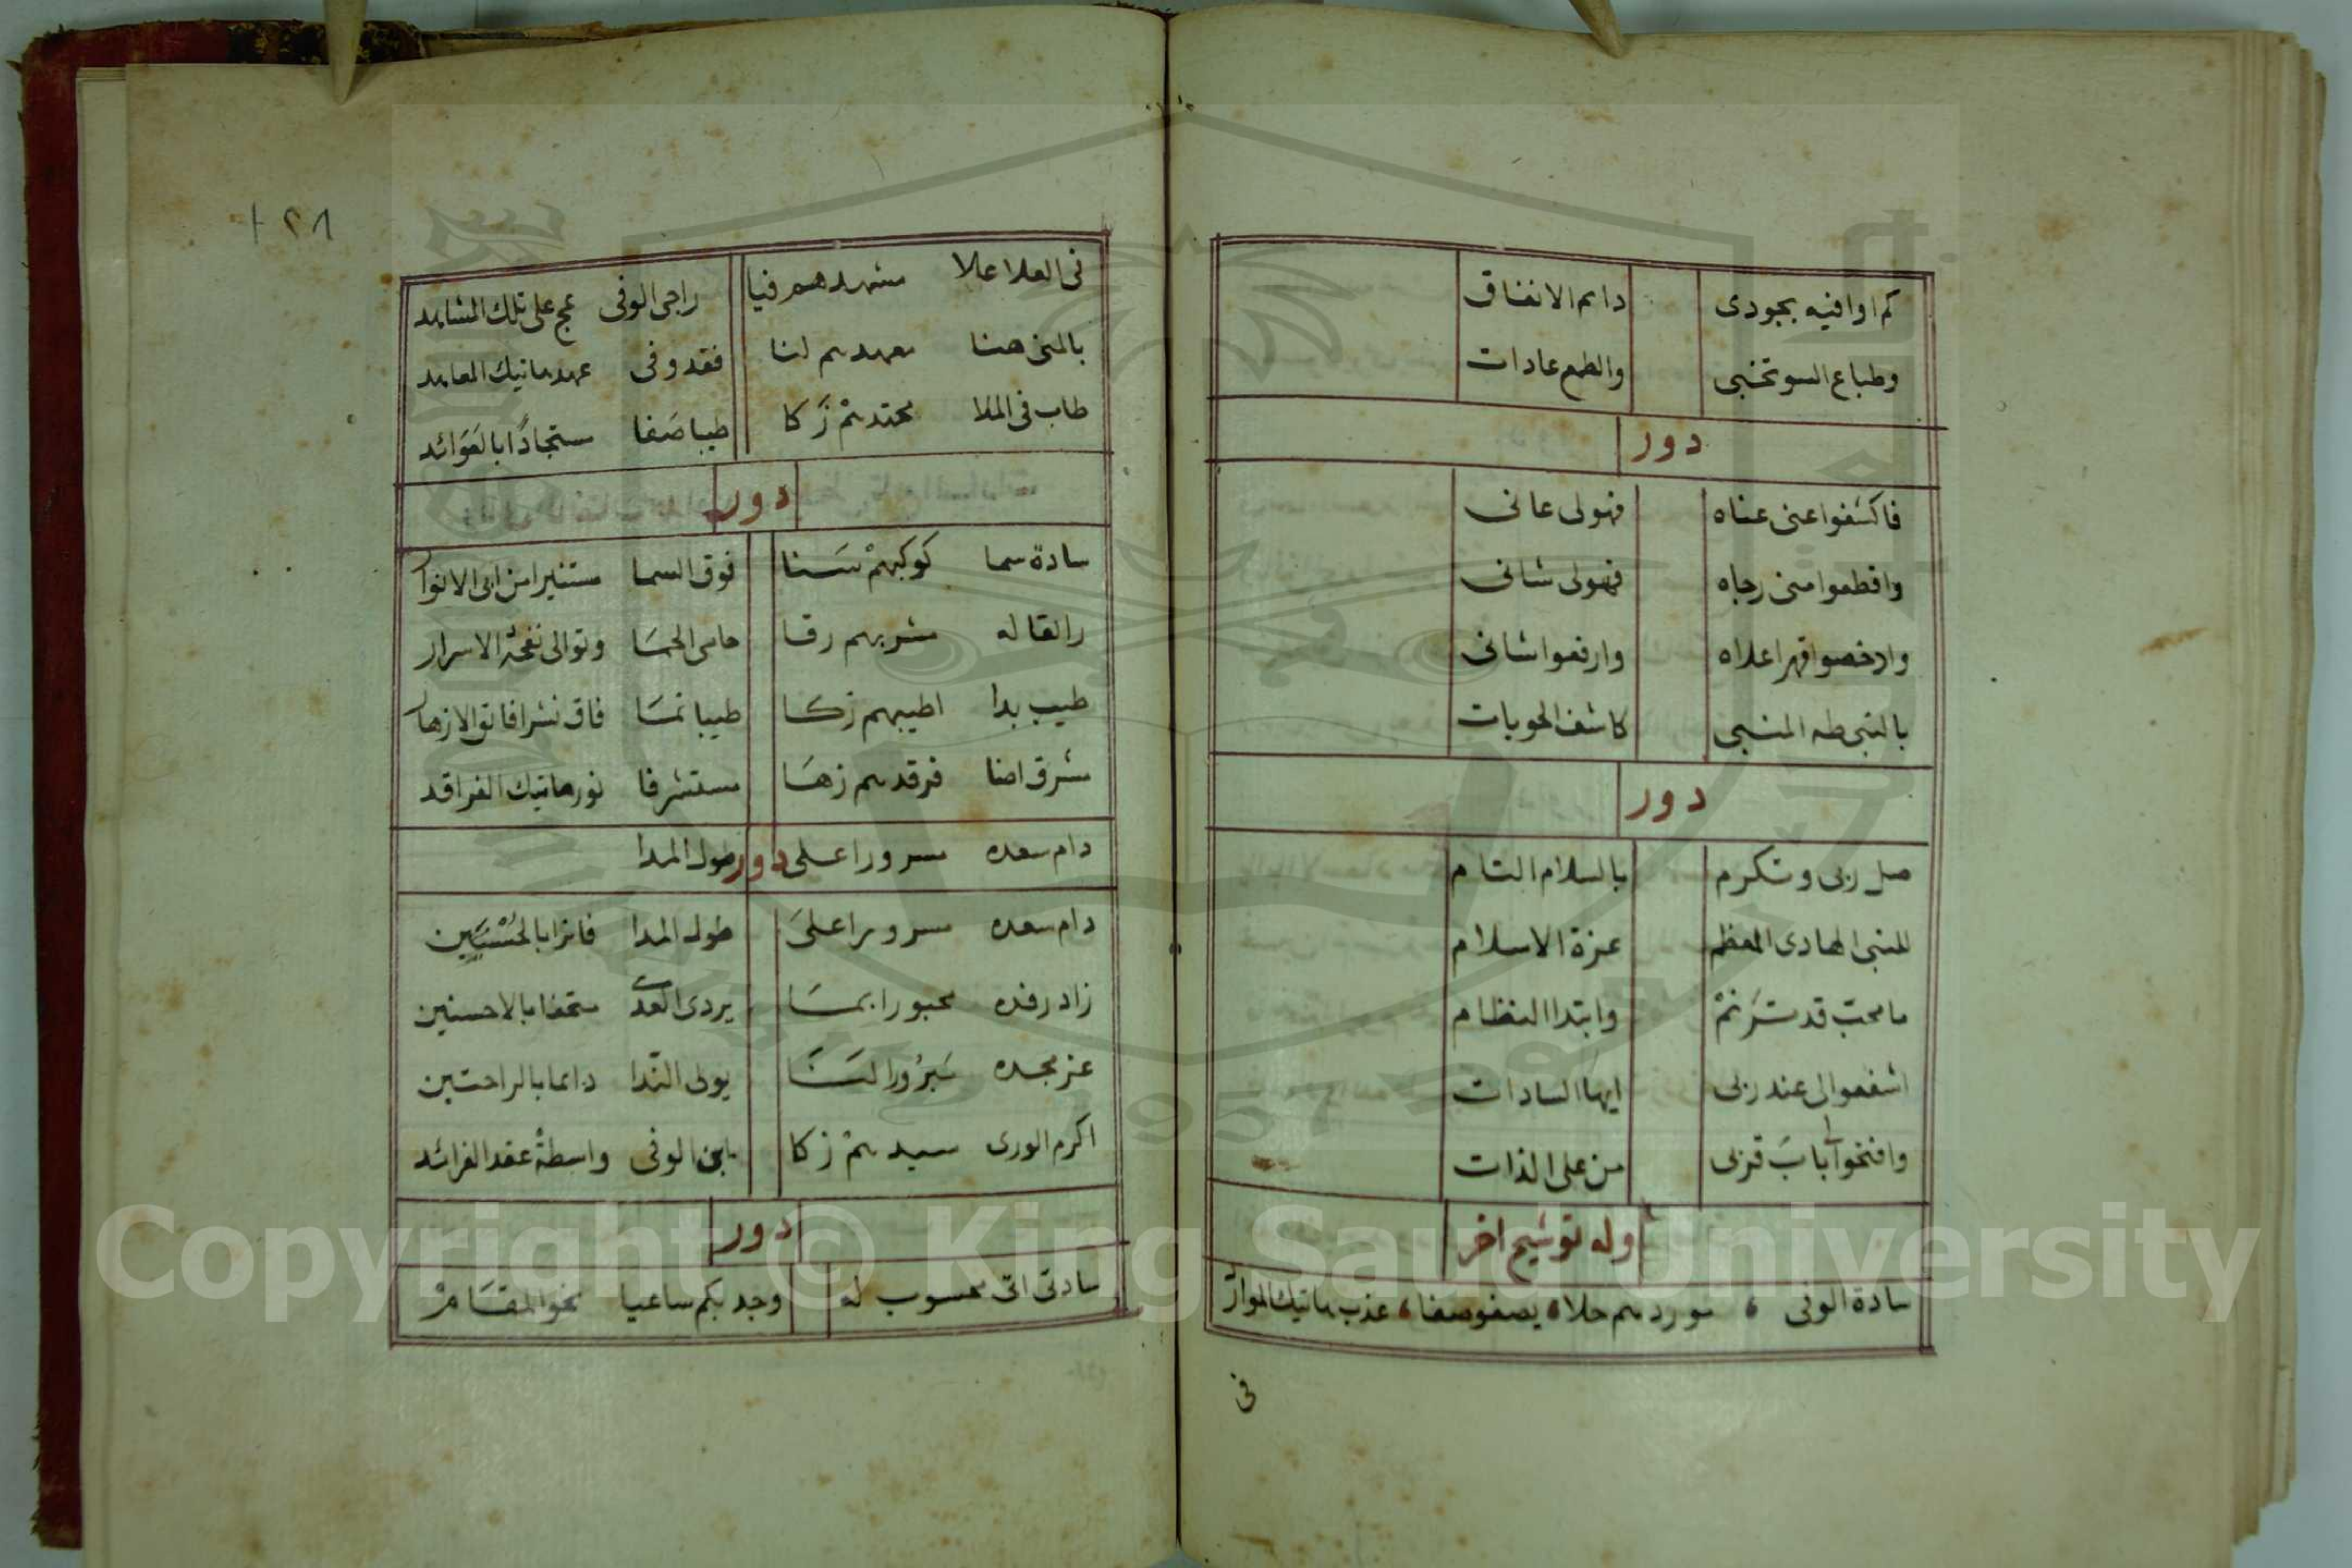 كم اوافيه بجودى دايم الانفاق
وطباع السو تختبى والطمع عادات
دور
فاكشفوا عنى عناه فهولى عانى
واقطعوا منى رجاه فهولى شانى
وارخصوا قهرا علاه وارفعوا شانى
بالنبى طه المنبى كاشف الحوبات
دور
صل ربى وتكرم بالسلام التام
للنبى الهادى المعظم عزة الاسلام
ما محب قد ترنم وابتدا النظام
اشفعوا لى عند ربى ايها السادات
وافتحوا لى باب قربى من على الذات
وله توشيح اخر
سادة الوفى ، موردهم حلا ، يصفو صفا ، عذب هاتيك الموارد
فى
١٢٨
فى العلا علا مشهدهم فيا راجى الوفى عج على تلك المشاهد
بالمنى هنا معهدهم لنا فقد وفى عهد هاتيك المعاهد
طاب فى الملا محتدهم زكا طيبا صفا ستجادا بالعوائد
دور
سادة سما كوكبهم سنا فوق السما مستنيرا من ابى الانوار
راقا له مشربهم رقا حامى الحما وتوالى نفحة الاسرار
طيب بدا اطيبهم زكا طيبا نما فاق نشرا فائق الازهار
مشرق اضا فرقدهم زها مستشرفا نور هاتيك الفراقد
دام سعده مسرورا على دور طول المدا
دام سعده مسرورا على طول المدا فائزا بالحسنيين
زاد رفده محبورا بما يردى العدى متحفا بالاحسنين
عز مجده مبرورا لنا يولى الندا دائما بالراحتين
اكرم الورى سيدهم زكا بابن الوفى واسطة عقد الفرائد
دور
سادتى اتى محسوب له وجد بكم ساعيا نحو المقام